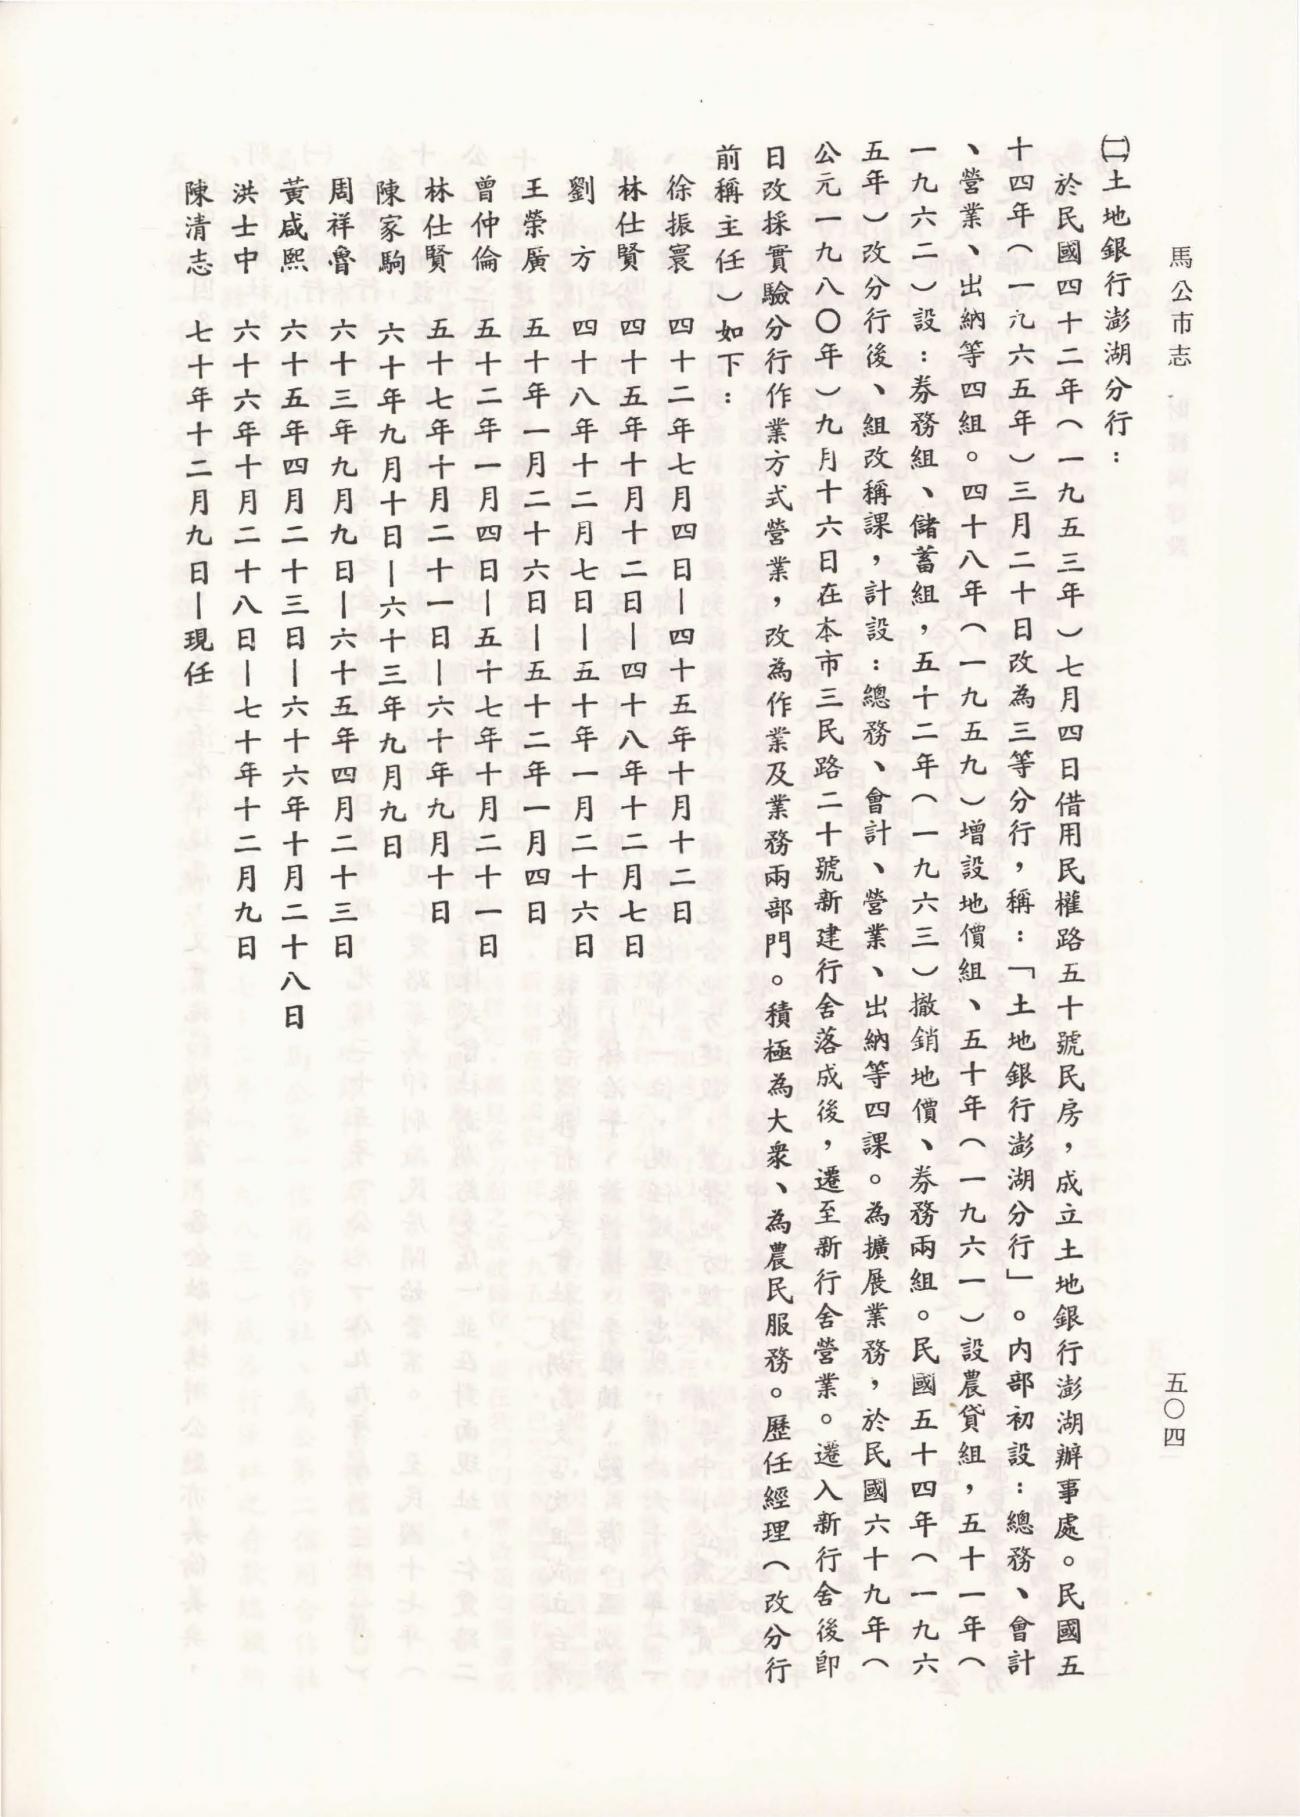 馬公市志
五〇四
㈡土地銀行澎湖分行：
於民國四十二年（一九五三年）七月四日借用民權路五十號民房，成立土地銀行澎湖辦事處。民國五
十四年（一九六五年）三月二十日改為三等分行，稱：「土地銀行澎湖分行」。內部初設：總務、會計
、營業、出納等四組。四十八年（一九五九）增設地價組、五十年（一九六一）設農貸組，五十一年（
一九六二）設：券務組、儲蓄組，五十二年（一九六三）撤銷地價、券務兩組。民國五十四年（一九六
五年）改分行後、組改稱課，計設：總務、會計、營業、出納等四課。為擴展業務，於民國六十九年（
公元一九八〇年）九月十六日在本市三民路二十號新建行舍落成後，遷至新行舍營業。遷入新行舍後即
日改採實驗分行作業方式營業，改為作業及業務兩部門。積極為大衆、為農民服務。歷任經理（改分行
前稱主任）如下：
徐振寰　四十二年七月四日—四十五年十月十二日
林仕賢　四十五年十月十二日—四十八年十二月七日
劉　方　四十八年十二月七日—五十年一月二十六日
王榮廣　五十年一月二十六日—五十二年一月四日
曾仲倫　五十二年一月四日—五十七年十月二十一日
林仕賢　五十七年十月二十一日—六十年九月十日
陳家駒　六十年九月十日—六十三年九月九日
周祥魯　六十三年九月九日—六十五年四月二十三日
黃咸熙　六十五年四月二十三日—六十六年十月二十八日
洪士中　六十六年十月二十八日—七十年十二月九日
陳清志　七十年十二月九日—現任